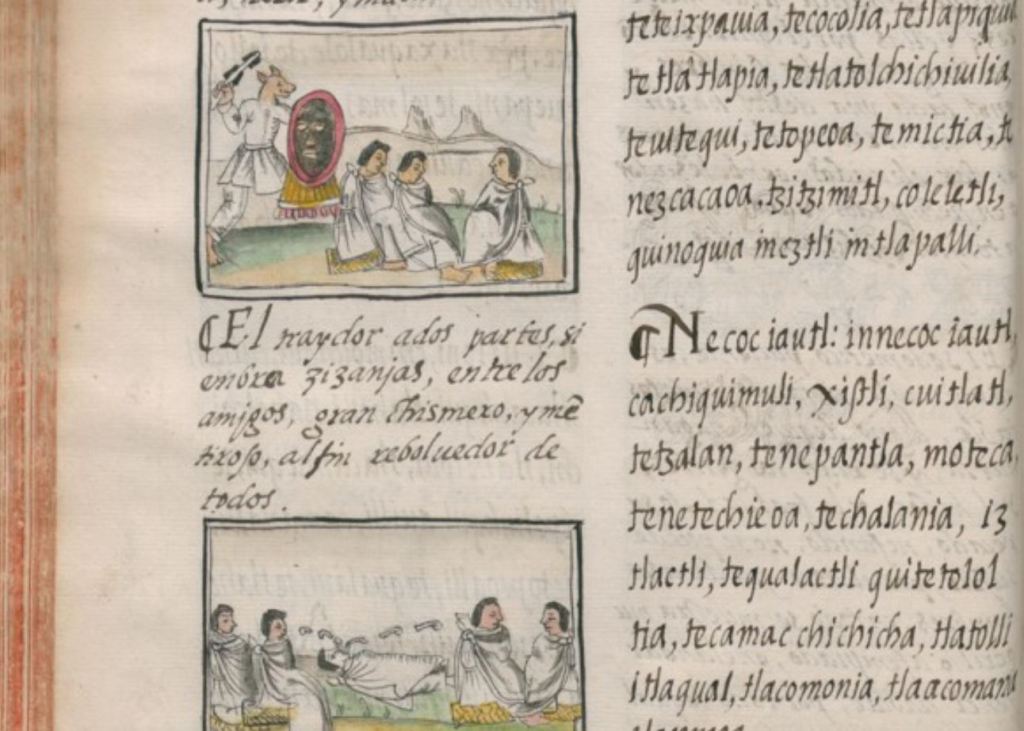 El traydor ados partes, si
embra zizanjas, entre los
amigos, gran chismero, y mẽ
tiroso, al fin reboluedor de
todos.
teteixpauia, tecocolia, tetlapiquia
tetlatlapia, tetlatolchichiuilia,
teuitequi, tetopeoa, temictia, te
nezcacaoa, tzitzimitl, coleletli,
quinoquia ineztli intlapalli.
Necoc iautl: innecoc iautl,
cachiquimuli, xistli, cuitlatl,
tetzalan, tenepantla, moteca
tenetechieoa, techalania, iz
tlactli, tequalactli quitetolol
tia, tecamac chichicha, tlatolli
itlaqual, tlacomonia, tlaacomana